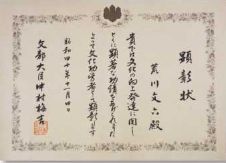 顕彰状
荒川文六殿
貴下は文化の向上発達に関し
とくに顕著な功績を挙げられました
よって文化功労者として顕彰します
昭和四十年十一月四日
文部大臣中村梅吉